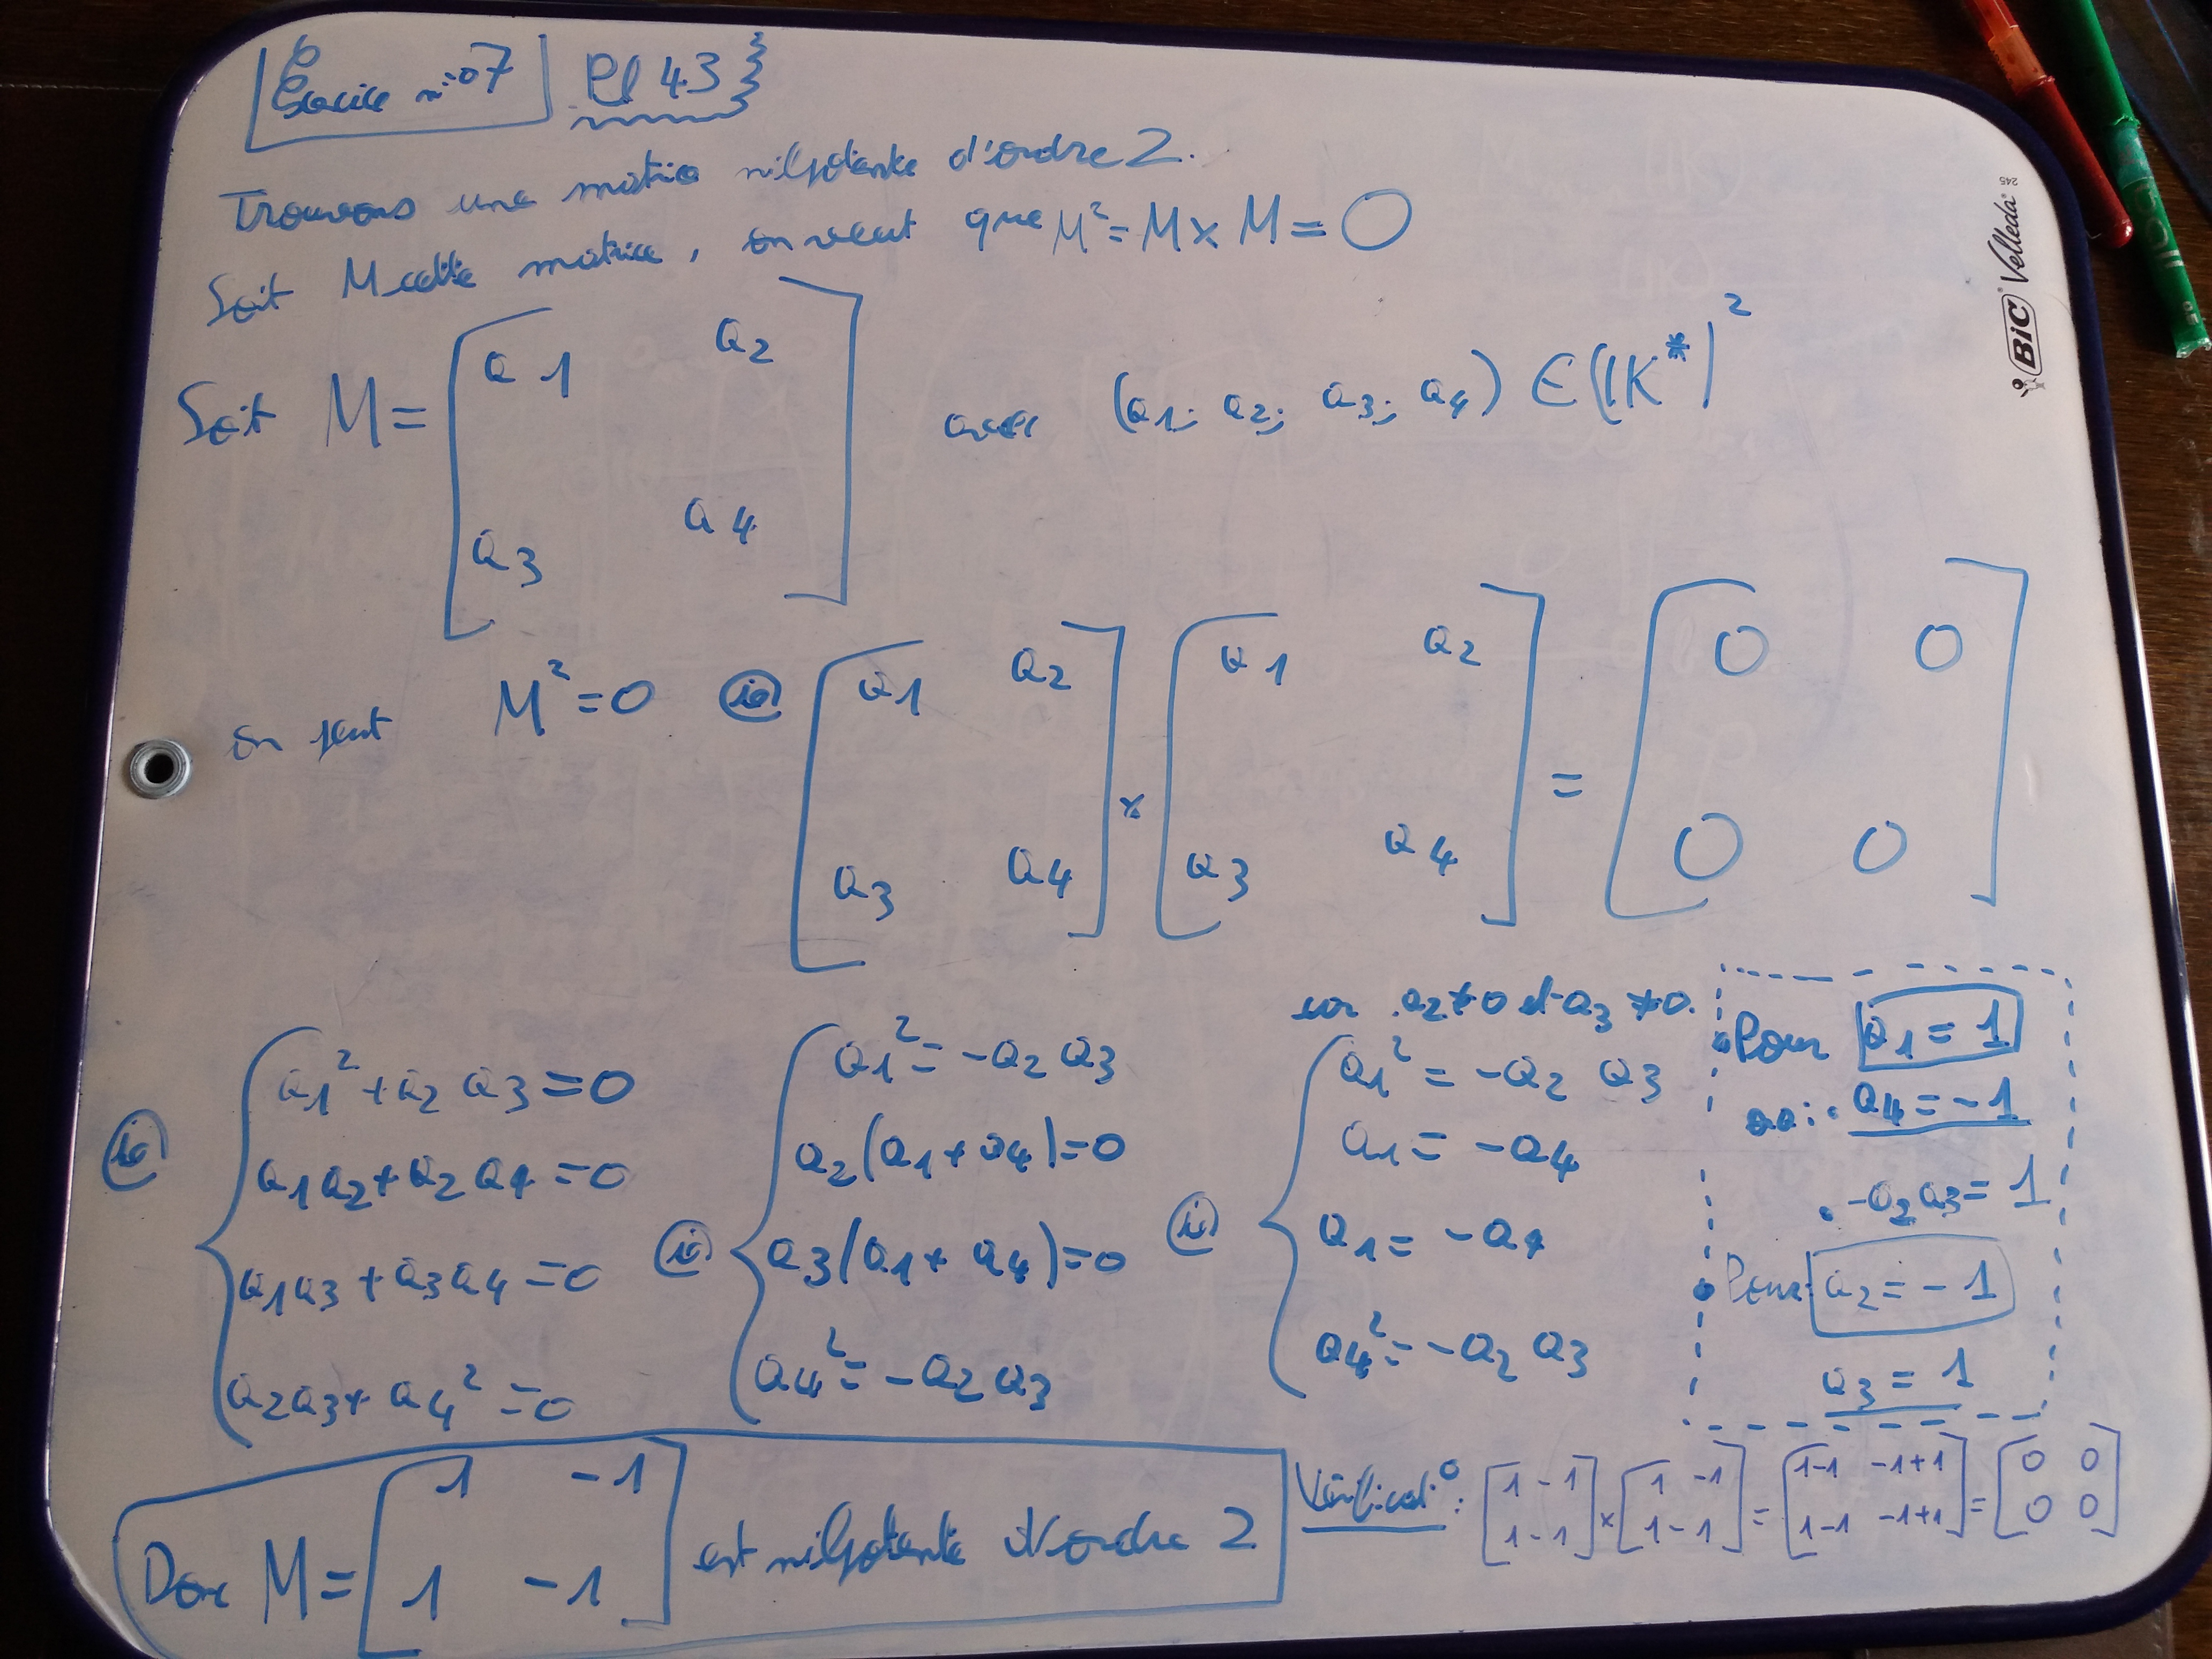 Exercice n°07 Pl 43
Trouvons une matrice nilpotente d'ordre 2.
Soit M cette matrice, on veut que M² = M × M = 0
Soit M = [ a1 a2
a3 a4 ] avec (a1; a2; a3; a4) ∈ (IK*)²
on veut M² = 0 ie [ a1 a2 ] × [ a1 a2 ] = [ 0 0 ]
[ a3 a4 ] [ a3 a4 ] [ 0 0 ]
ie { a1² + a2 a3 = 0
a1 a2 + a2 a4 = 0
a1 a3 + a3 a4 = 0
a2 a3 + a4² = 0
ie { a1² = -a2 a3
a2(a1 + a4) = 0
a3(a1 + a4) = 0
a4² = -a2 a3
car a2 ≠ 0 et a3 ≠ 0.
ie { a1² = -a2 a3
a1 = -a4
a1 = -a4
a4² = -a2 a3
• Pour a1 = 1
on a: • a4 = -1
• -a2 a3 = 1
• Pour a2 = -1
a3 = 1
Donc M = [ 1 -1
1 -1 ] est nilpotente d'ordre 2
Vérificat°: [ 1 -1 ] × [ 1 -1 ] = [ 1-1 -1+1 ] = [ 0 0 ]
[ 1 -1 ] [ 1 -1 ] [ 1-1 -1+1 ] [ 0 0 ]
BIC Velleda
245